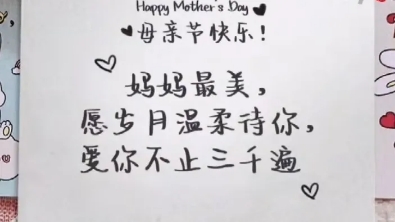 Happy Mother's Day
母亲节快乐!
妈妈最美,
愿岁月温柔待你,
爱你不止三千遍